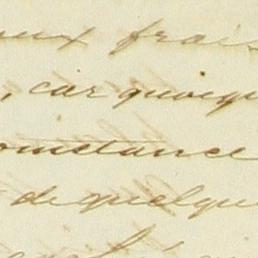 aux frais
, car quoiqu
constance
de quelque